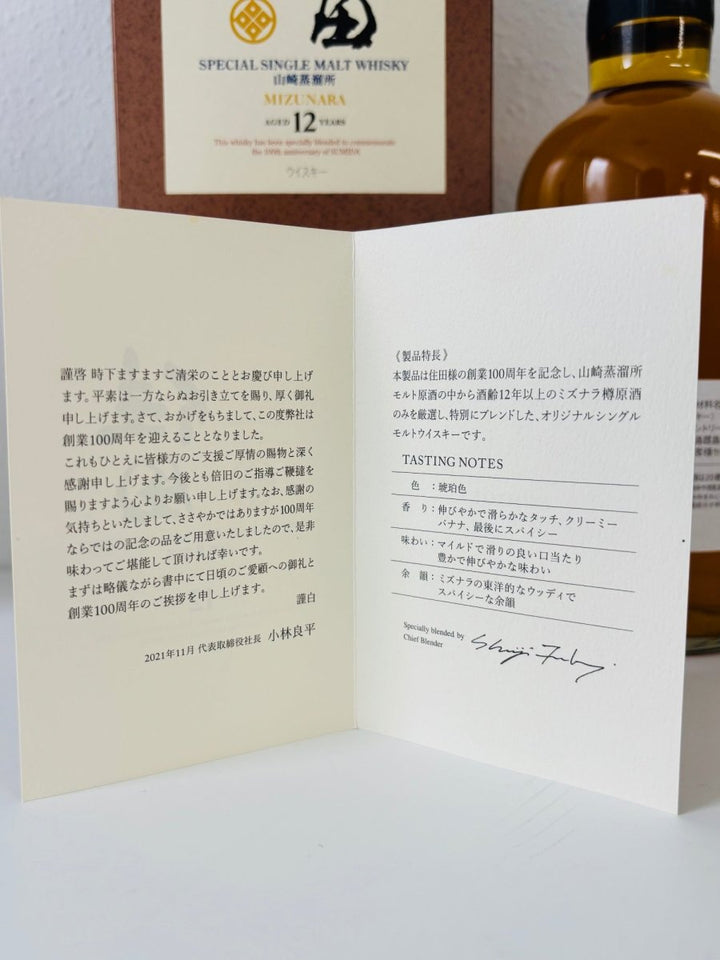 SPECIAL SINGLE MALT WHISKY
山崎蒸溜所
MIZUNARA
AGED 12 YEARS
This whisky has been specially blended to commemorate
the 100th anniversary of SUMIDEN
ウイスキー
謹啓 時下ますますご清栄のこととお慶び申し上げ
ます。平素は一方ならぬお引き立てを賜り、厚く御礼
申し上げます。さて、おかげをもちまして、この度弊社は
創業100周年を迎えることとなりました。
これもひとえに皆様方のご支援ご厚情の賜物と深く
感謝申し上げます。今後とも倍旧のご指導ご鞭撻を
賜りますよう心よりお願い申し上げます。なお、感謝の
気持ちといたしまして、ささやかではありますが100周年
ならではの記念の品をご用意いたしましたので、是非
味わってご堪能して頂ければ幸いです。
まずは略儀ながら書中にて日頃のご愛顧への御礼と
創業100周年のご挨拶を申し上げます。
謹白
2021年11月 代表取締役社長 小林良平
《製品特長》
本製品は住田様の創業100周年を記念し、山崎蒸溜所
モルト原酒の中から酒齢12年以上のミズナラ樽原酒
のみを厳選し、特別にブレンドした、オリジナルシングル
モルトウイスキーです。
TASTING NOTES
色 : 琥珀色
香 り : 伸びやかで滑らかなタッチ、クリーミー
バナナ、最後にスパイシー
味わい : マイルドで滑りの良い口当たり
豊かで伸びやかな味わい
余 韻 : ミズナラの東洋的なウッディで
スパイシーな余韻
Specially blended by
Chief Blender